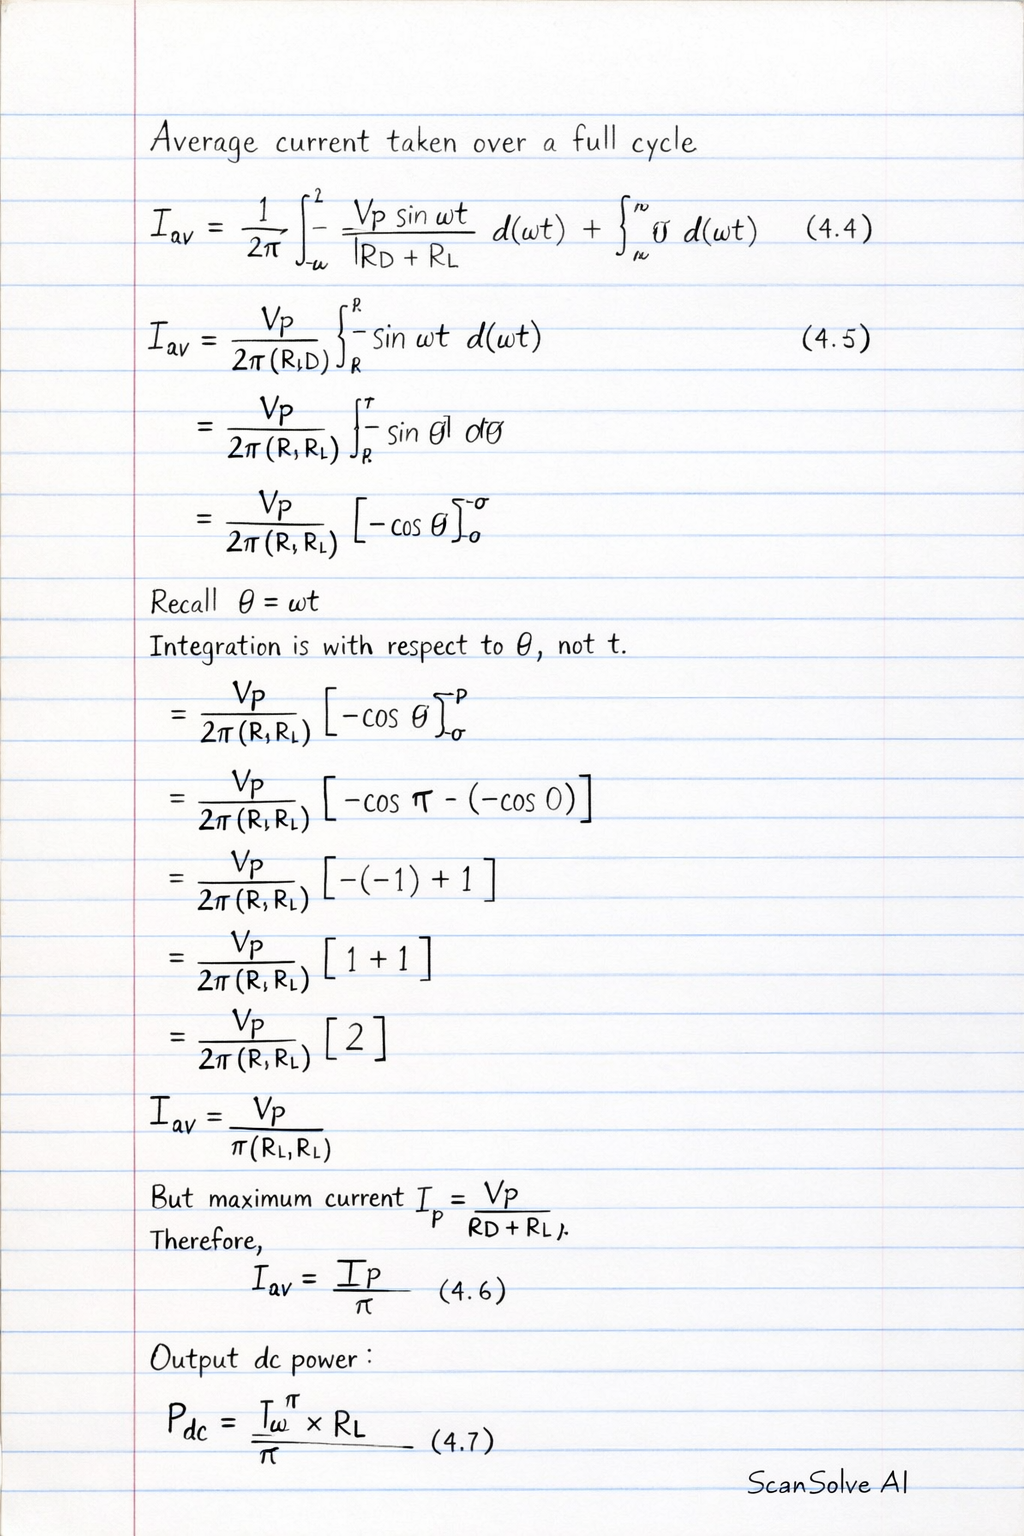 Average current taken over a full cycle
I_av = 1/2π ∫_-w^2 Vp sin wt / RD + RL d(wt) + ∫ σ d(wt) (4.4)
I_av = Vp / 2π(R,D) ∫_R^R sin wt d(wt) (4.5)
= Vp / 2π(R,RL) ∫_R^T sin θ dθ
= Vp / 2π(R,RL) [-cos θ]_o^-σ
Recall θ = wt
Integration is with respect to θ, not t.
= Vp / 2π(R,RL) [-cos θ]_-σ^-P
= Vp / 2π(R,RL) [-cos π - (-cos 0)]
= Vp / 2π(R,RL) [-(-1) + 1]
= Vp / 2π(R,RL) [1 + 1]
= Vp / 2π(R,RL) [2]
I_av = Vp / π(RL,RL)
But maximum current I_p = Vp / RD + RL
Therefore,
I_av = Ip / π (4.6)
Output dc power:
P_dc = I_w^π × RL / π (4.7)
ScanSolve AI